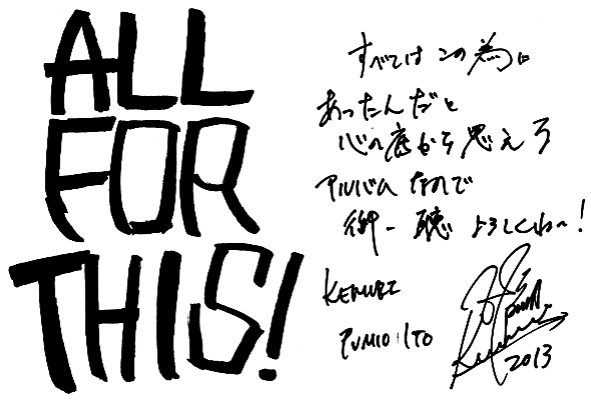 ALL
FOR
THIS!
すべては この為に
あったんだと
心の底から 思える
アルバム なので
御一聴 よろしくね〜!
KEMURI
FUMIO ITO
2013